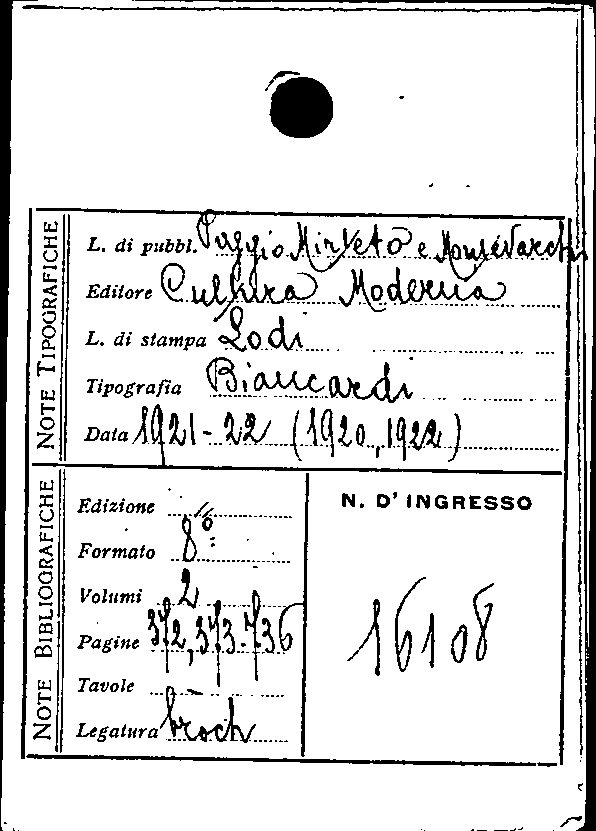 NOTE TIPOGRAFICHE
L. di pubbl. Poggio Mirteto e Montevarchi
Editore Cultura Moderna
L. di stampa Lodi
Tipografia Biancardi
Data 1921-22 (1920, 1922)
NOTE BIBLIOGRAFICHE
Edizione "
Formato 8º
Volumi 2
Pagine 372, 373-736
Tavole –
Legatura broch
N. D'INGRESSO
16108